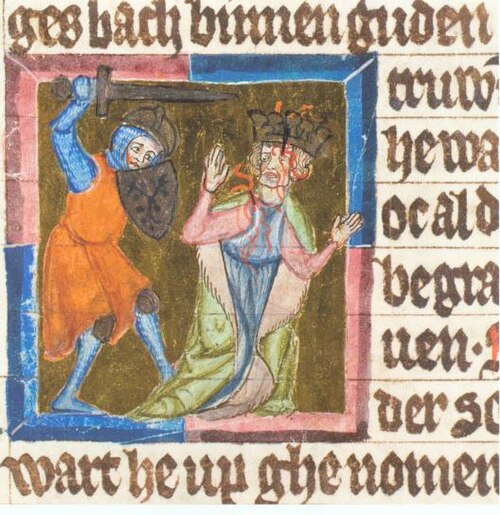 ges bach binnen guden
truw̄
hewa
ocald
begra
uen.
der se
wart he up ghenomen